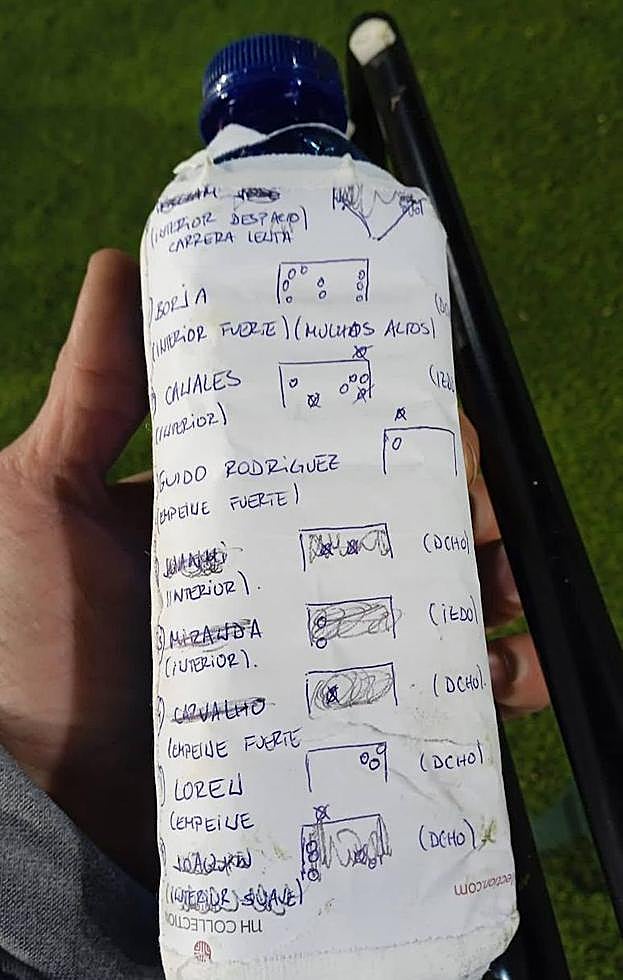 (INTERIOR DESPACIO)
CARRERA LENTA
BORJA
(INTERIOR FUERTE) (MUCHOS ALTOS)
CANALES (IZD
(INTERIOR)
GUIDO RODRIGUEZ
(EMPEINE FUERTE)
JUANMI (DCHO)
(INTERIOR).
MIRANDA (IZDO)
(INTERIOR).
CARVALHO (DCHO).
(EMPEINE FUERTE
LOREN (DCHO)
(EMPEINE
JOAQUIN (DCHO)
(INTERIOR SUAVE)
NH COLLECTION
lection.com